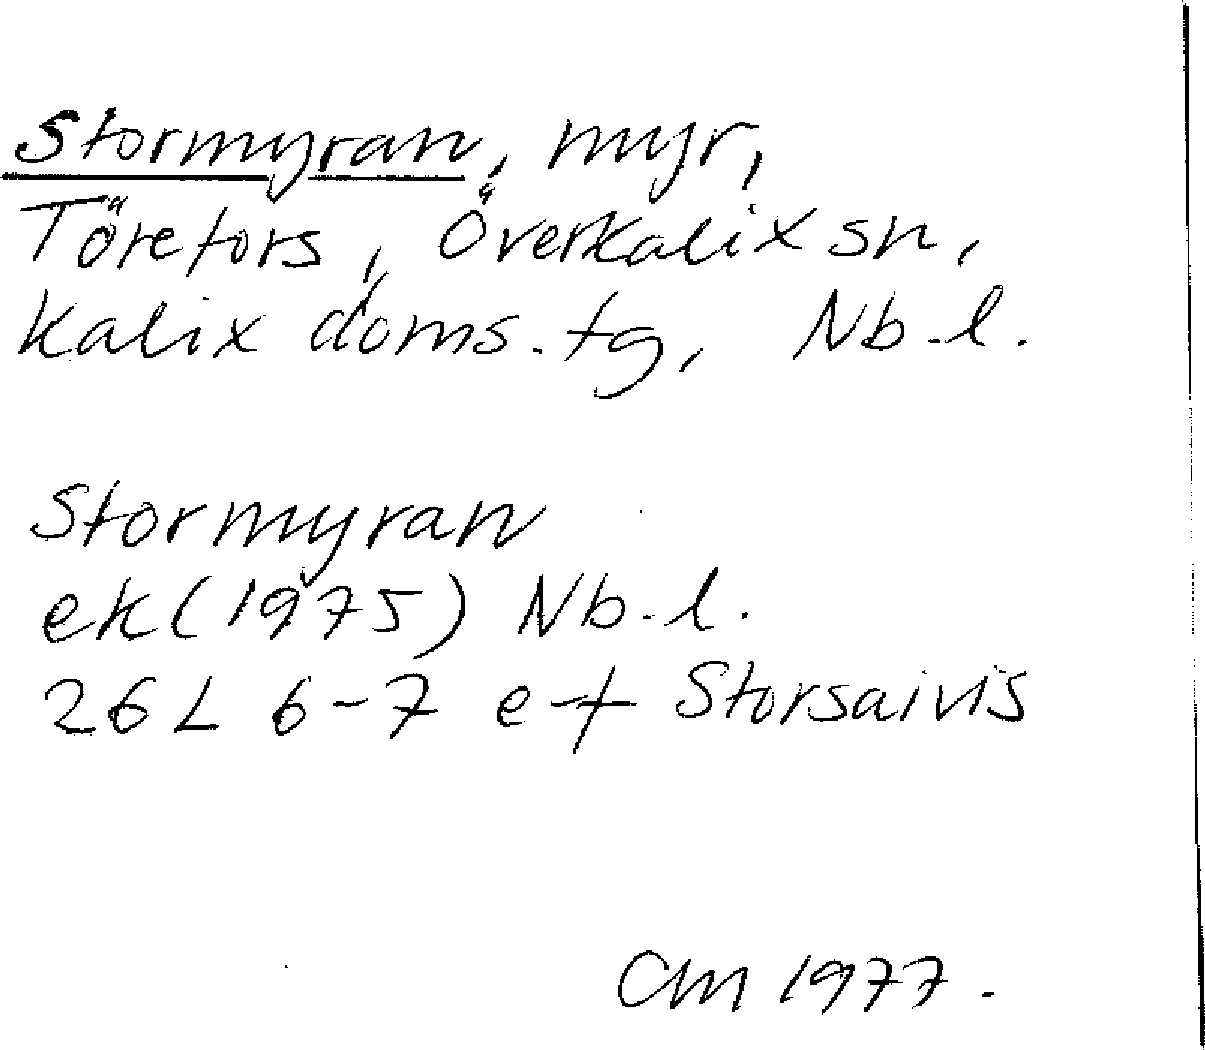 Stormyran, myr,
Törefors, Överkalix sn,
Kalix doms. tg, Nb. l.
Stormyran
ek (1975) Nb. l.
26 L 6-7 e-f Storsaivis
CM 1977.